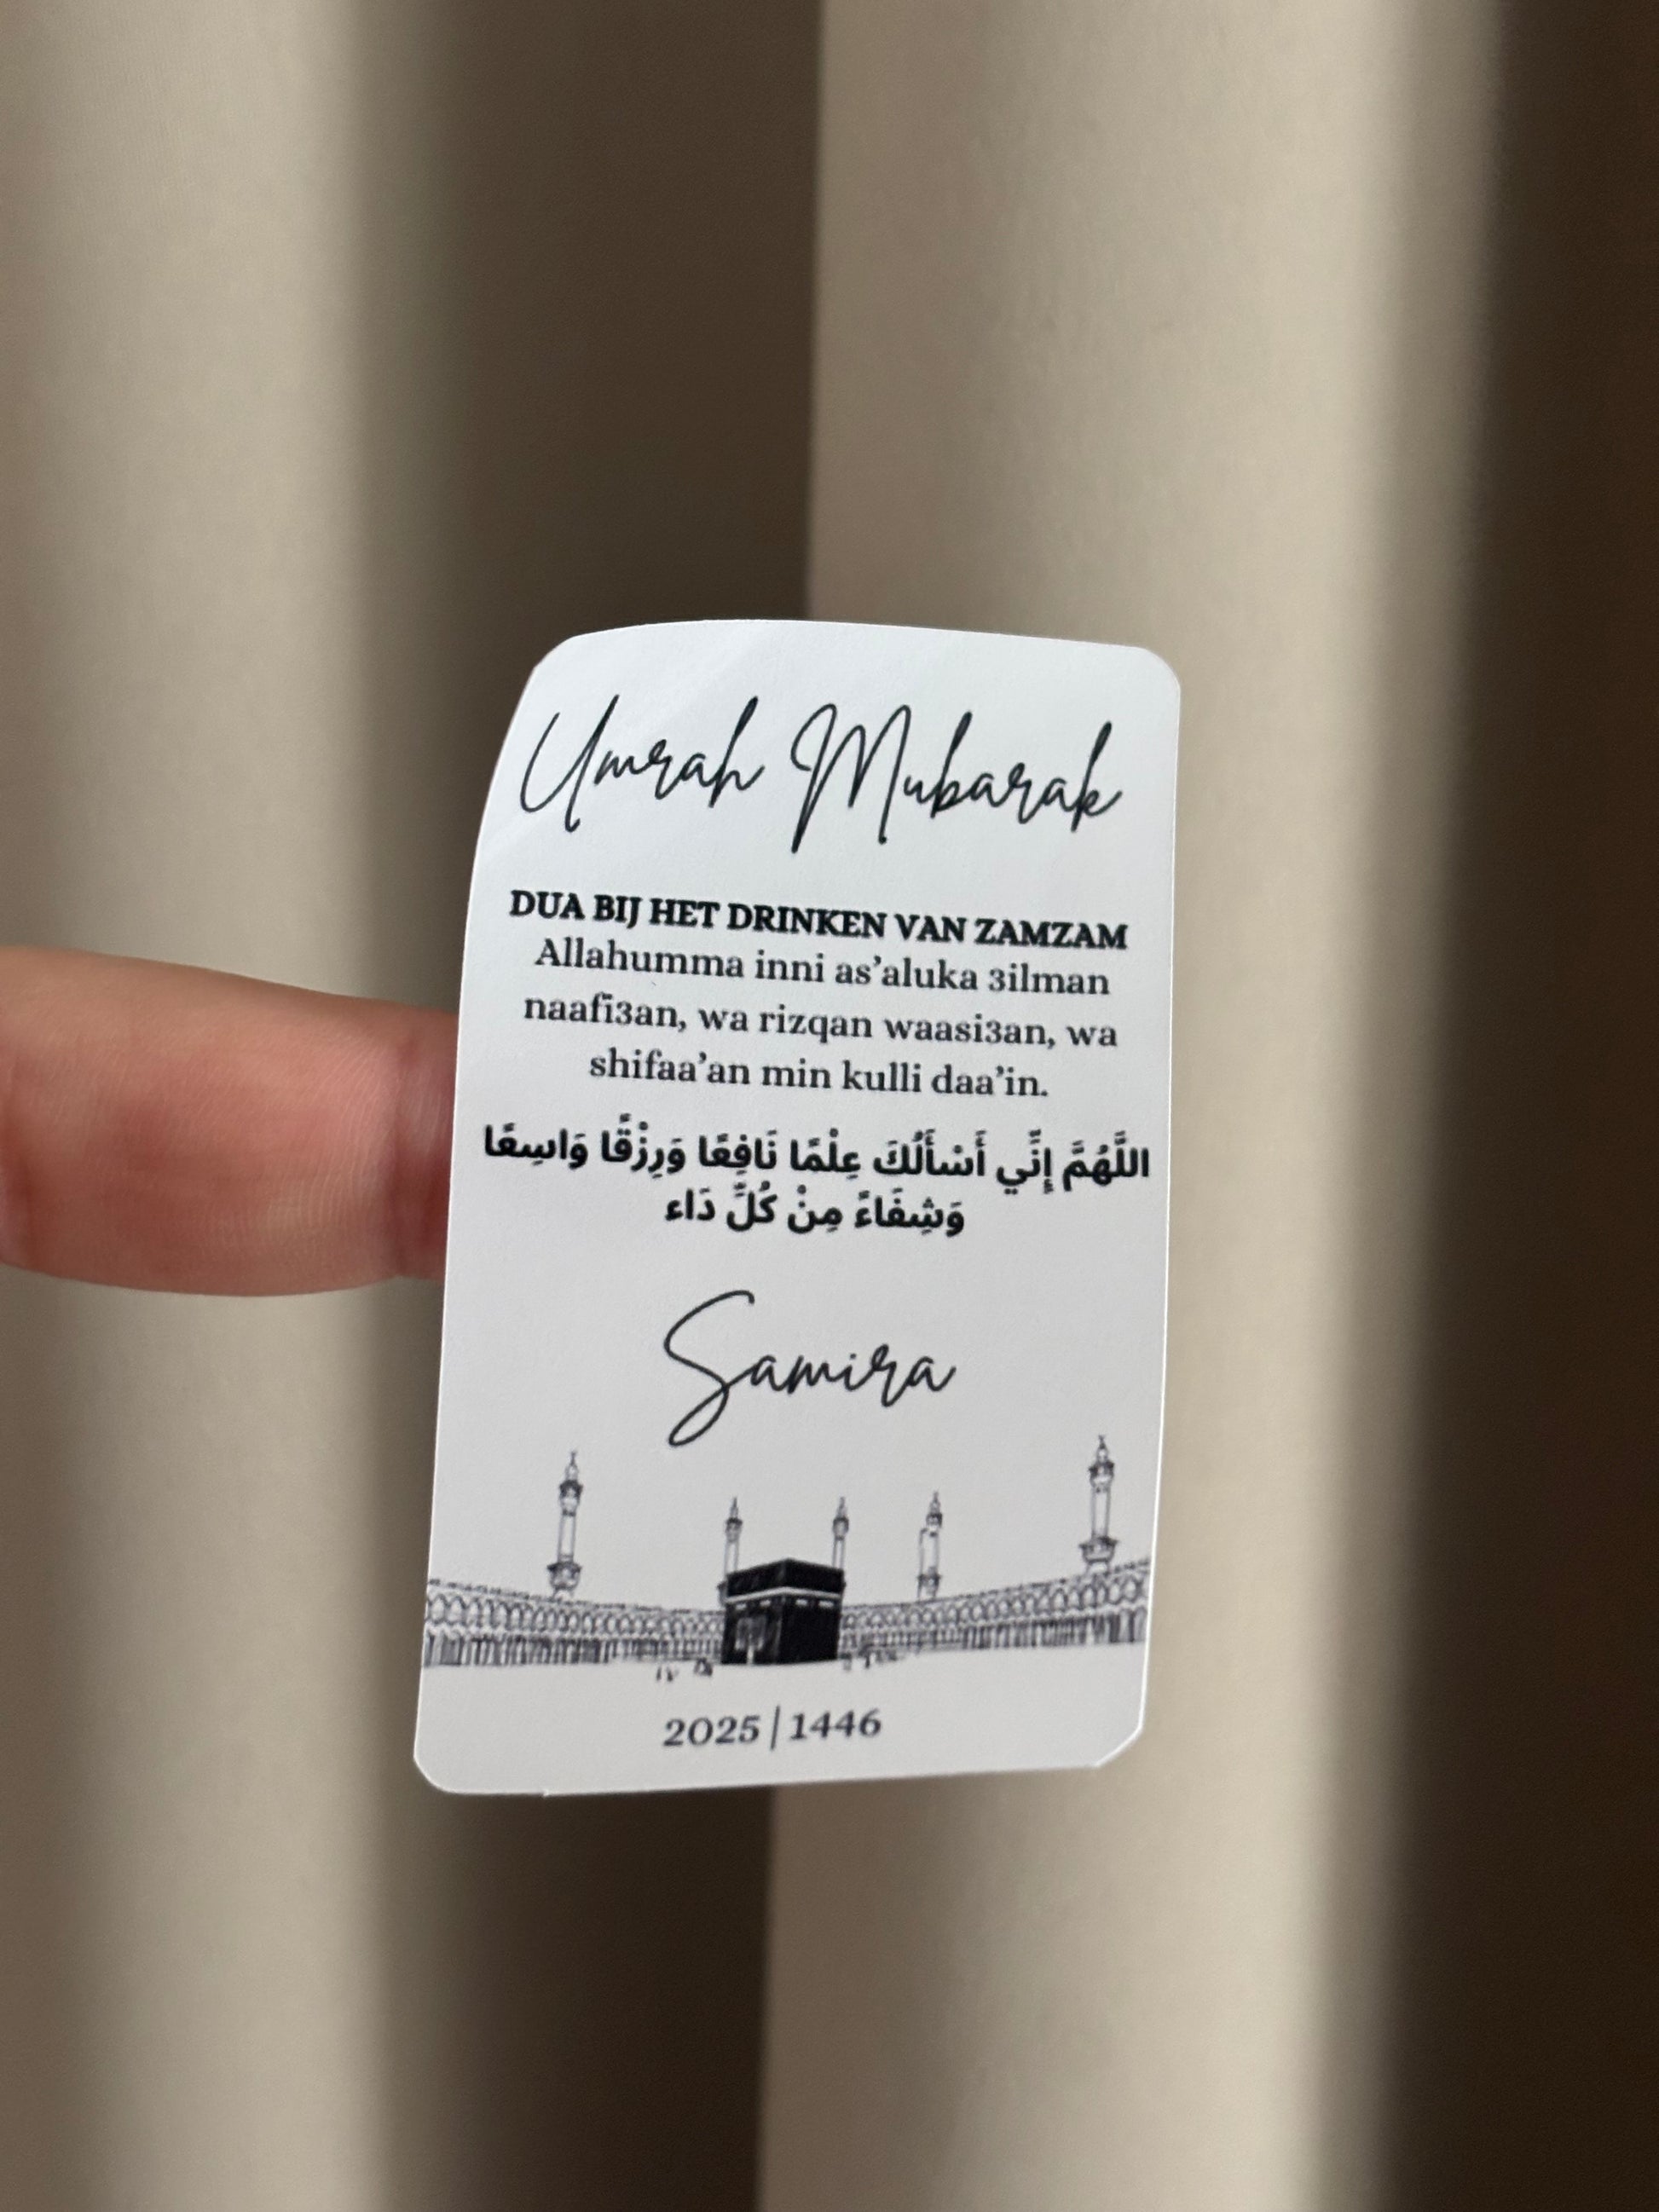 Umrah Mubarak
DUA BIJ HET DRINKEN VAN ZAMZAM
Allahumma inni as’aluka 3ilman
naafi3an, wa rizqan waasi3an, wa
shifaa’an min kulli daa’in.
اللَّهُمَّ إِنِّي أَسْأَلُكَ عِلْمًا نَافِعًا وَرِزْقًا وَاسِعًا
وَشِفَاءً مِنْ كُلِّ دَاء
Samira
2025|1446